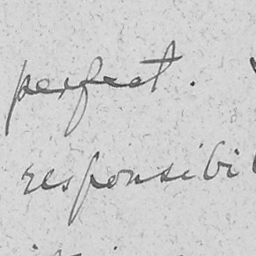 perfect.
responsibi